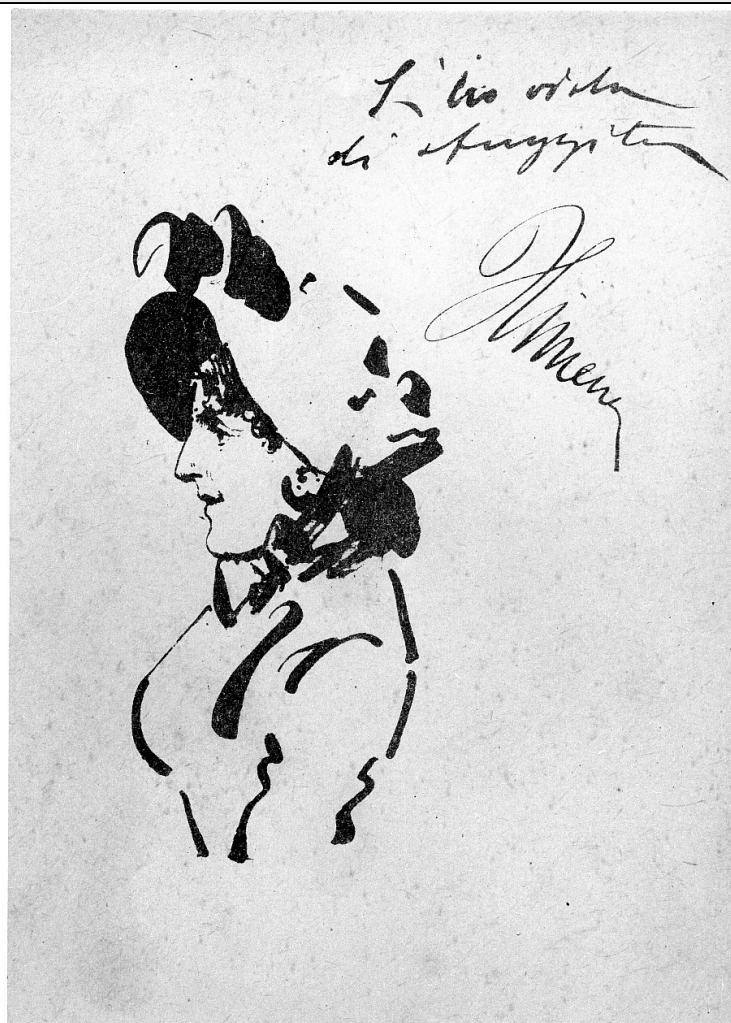 L'ho vista
di sfuggita
Ximenes